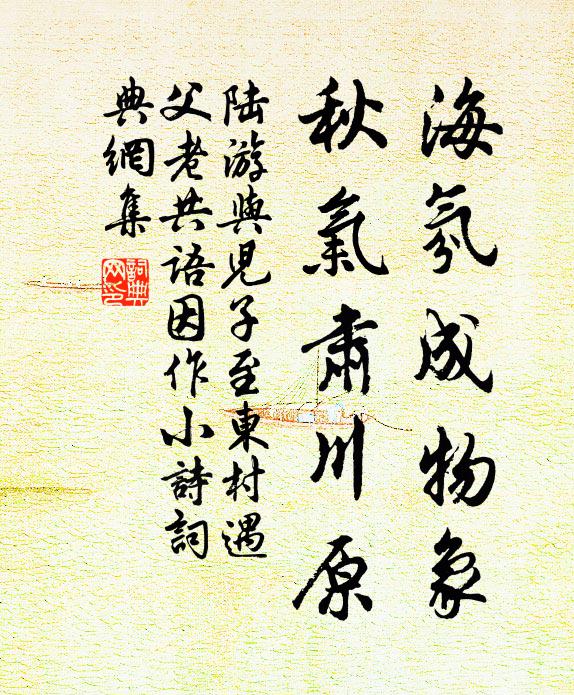 海氛成物象
秋氣肅川原
陸游與兒子至東村遇
父老共語因作小詩詞
典網集
詞典網印